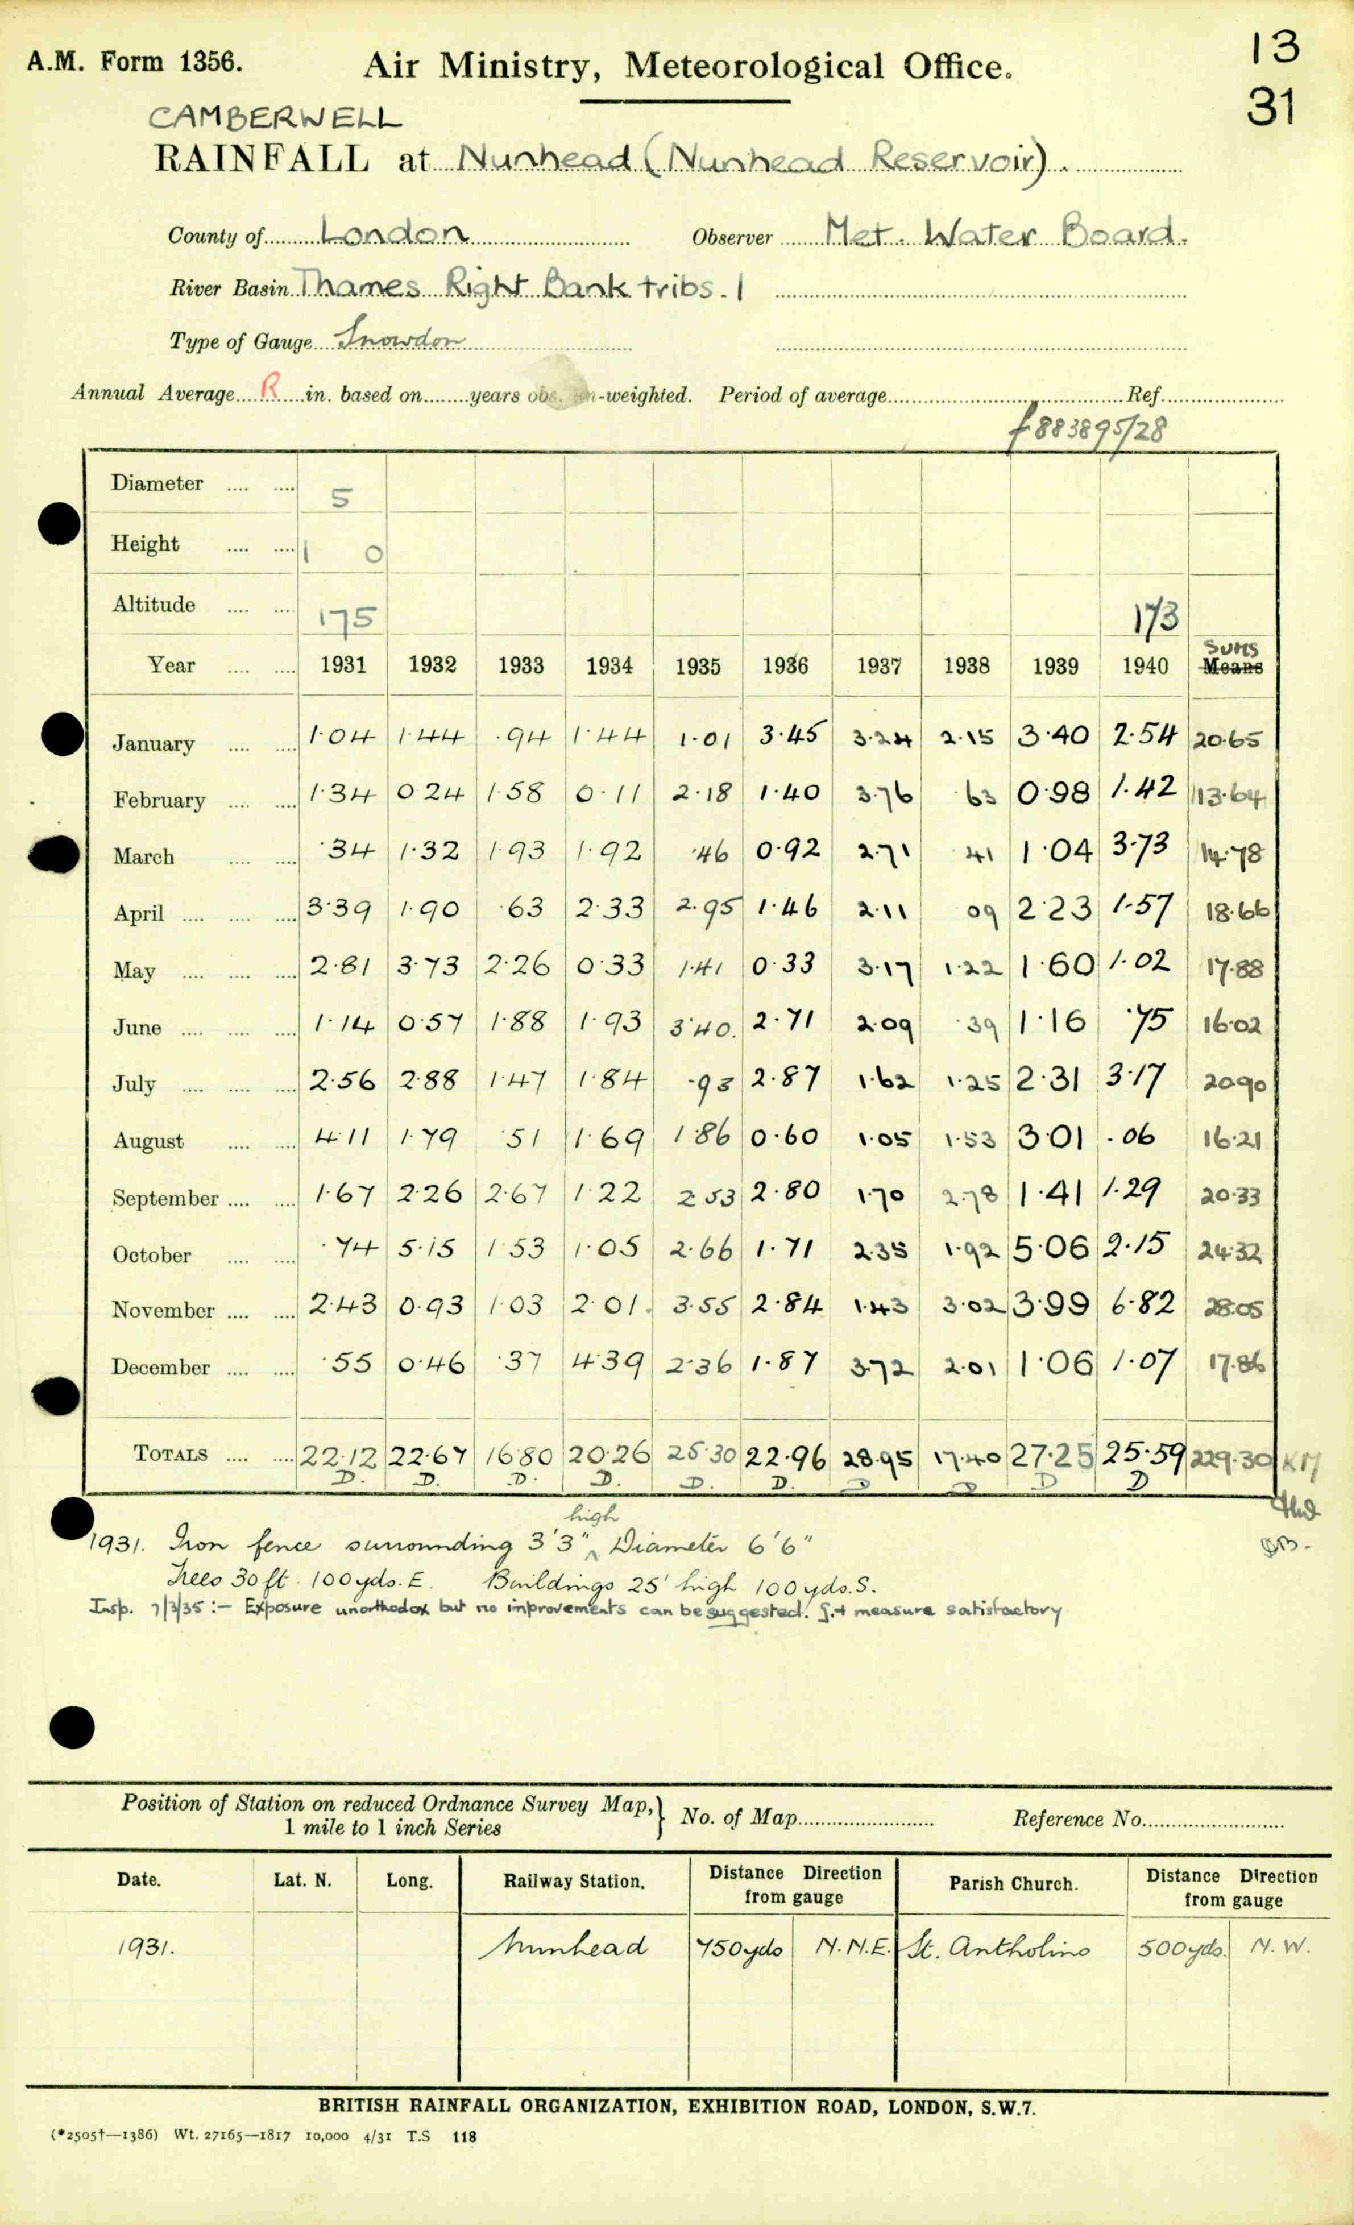 A.M. Form 1356.
Air Ministry, Meteorological Office.
13
31
CAMBERWELL
RAINFALL at Nunhead (Nunhead Reservoir).
County of London Observer Met. Water Board.
River Basin Thames Right Bank tribs. 1
Type of Gauge Snowdon
Annual Average R in. based on years obs. un-weighted. Period of average Ref.
f883895/28
Diameter 5
Height 1 0
Altitude 175 173
SUMS
Year 1931 1932 1933 1934 1935 1936 1937 1938 1939 1940 Means
January 1.04 1.44 .94 1.44 1.01 3.45 3.24 2.15 3.40 2.54 20.65
February 1.34 0 24 1.58 0.11 2.18 1.40 3.76 63 0.98 1.42 13.64
March .34 1.32 1.93 1.92 .46 0.92 2.71 41 1.04 3.73 14.78
April 3.39 1.90 .63 2.33 2.95 1.46 2.11 09 2.23 1.57 18.66
May 2.81 3.73 2.26 0.33 1.41 0.33 3.17 1.22 1.60 1.02 17.88
June 1.14 0.57 1.88 1.93 3.40. 2.71 2.09 .39 1.16 .75 16.02
July 2.56 2.88 1.47 1.84 .93 2.87 1.62 1.25 2.31 3.17 20.90
August 4.11 1.79 .51 1.69 1.86 0.60 1.05 1.53 3.01 .06 16.21
September 1.67 2.26 2.67 1.22 2 53 2.80 1.70 2.78 1.41 1.29 20.33
October .74 5.15 1.53 1.05 2.66 1.71 2.35 1.92 5.06 2.15 24.32
November 2.43 0.93 1.03 2.01. 3.55 2.84 1.43 3.02 3.99 6.82 28.05
December .55 0.46 .37 4.39 2.36 1.87 3.72 2.01 1.06 1.07 17.86
TOTALS 22.12 22.67 16.80 20.26 25.30 22.96 28.95 17.40 27.25 25.59 229.30 KM
D. D. D. D. D. D. D D D D
high
1931. Iron fence surrounding 3'3" ^ Diameter 6'6"
Trees 30 ft. 100 yds. E. Buildings 25' high 100 yds. S.
Insp. 7/3/35 :- Exposure unorthodox but no inprovements can be suggested. measure satisfactory
Position of Station on reduced Ordnance Survey Map, } No. of Map Reference No.
1 mile to 1 inch Series
Date. Lat. N. Long. Railway Station. Distance Direction from gauge Parish Church. Distance Direction from gauge
1931. Nunhead 750yds N.N.E. St. Antholins 500yds. N.W.
BRITISH RAINFALL ORGANIZATION, EXHIBITION ROAD, LONDON, S.W.7.
(*2505†—1386) Wt. 27165—1817 10,000 4/31 T.S 118